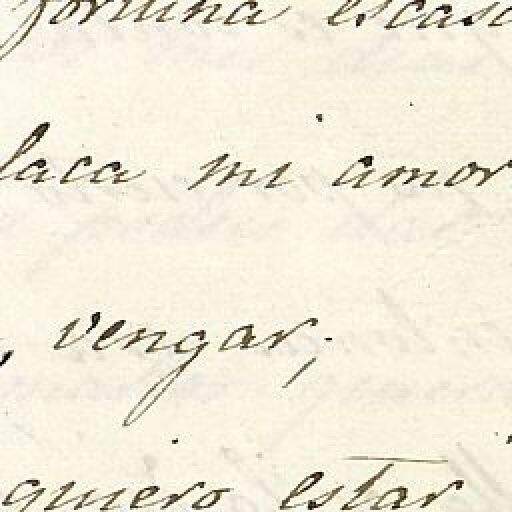 fortuna escasa
laca mi amor
, vengar;
quiero estar